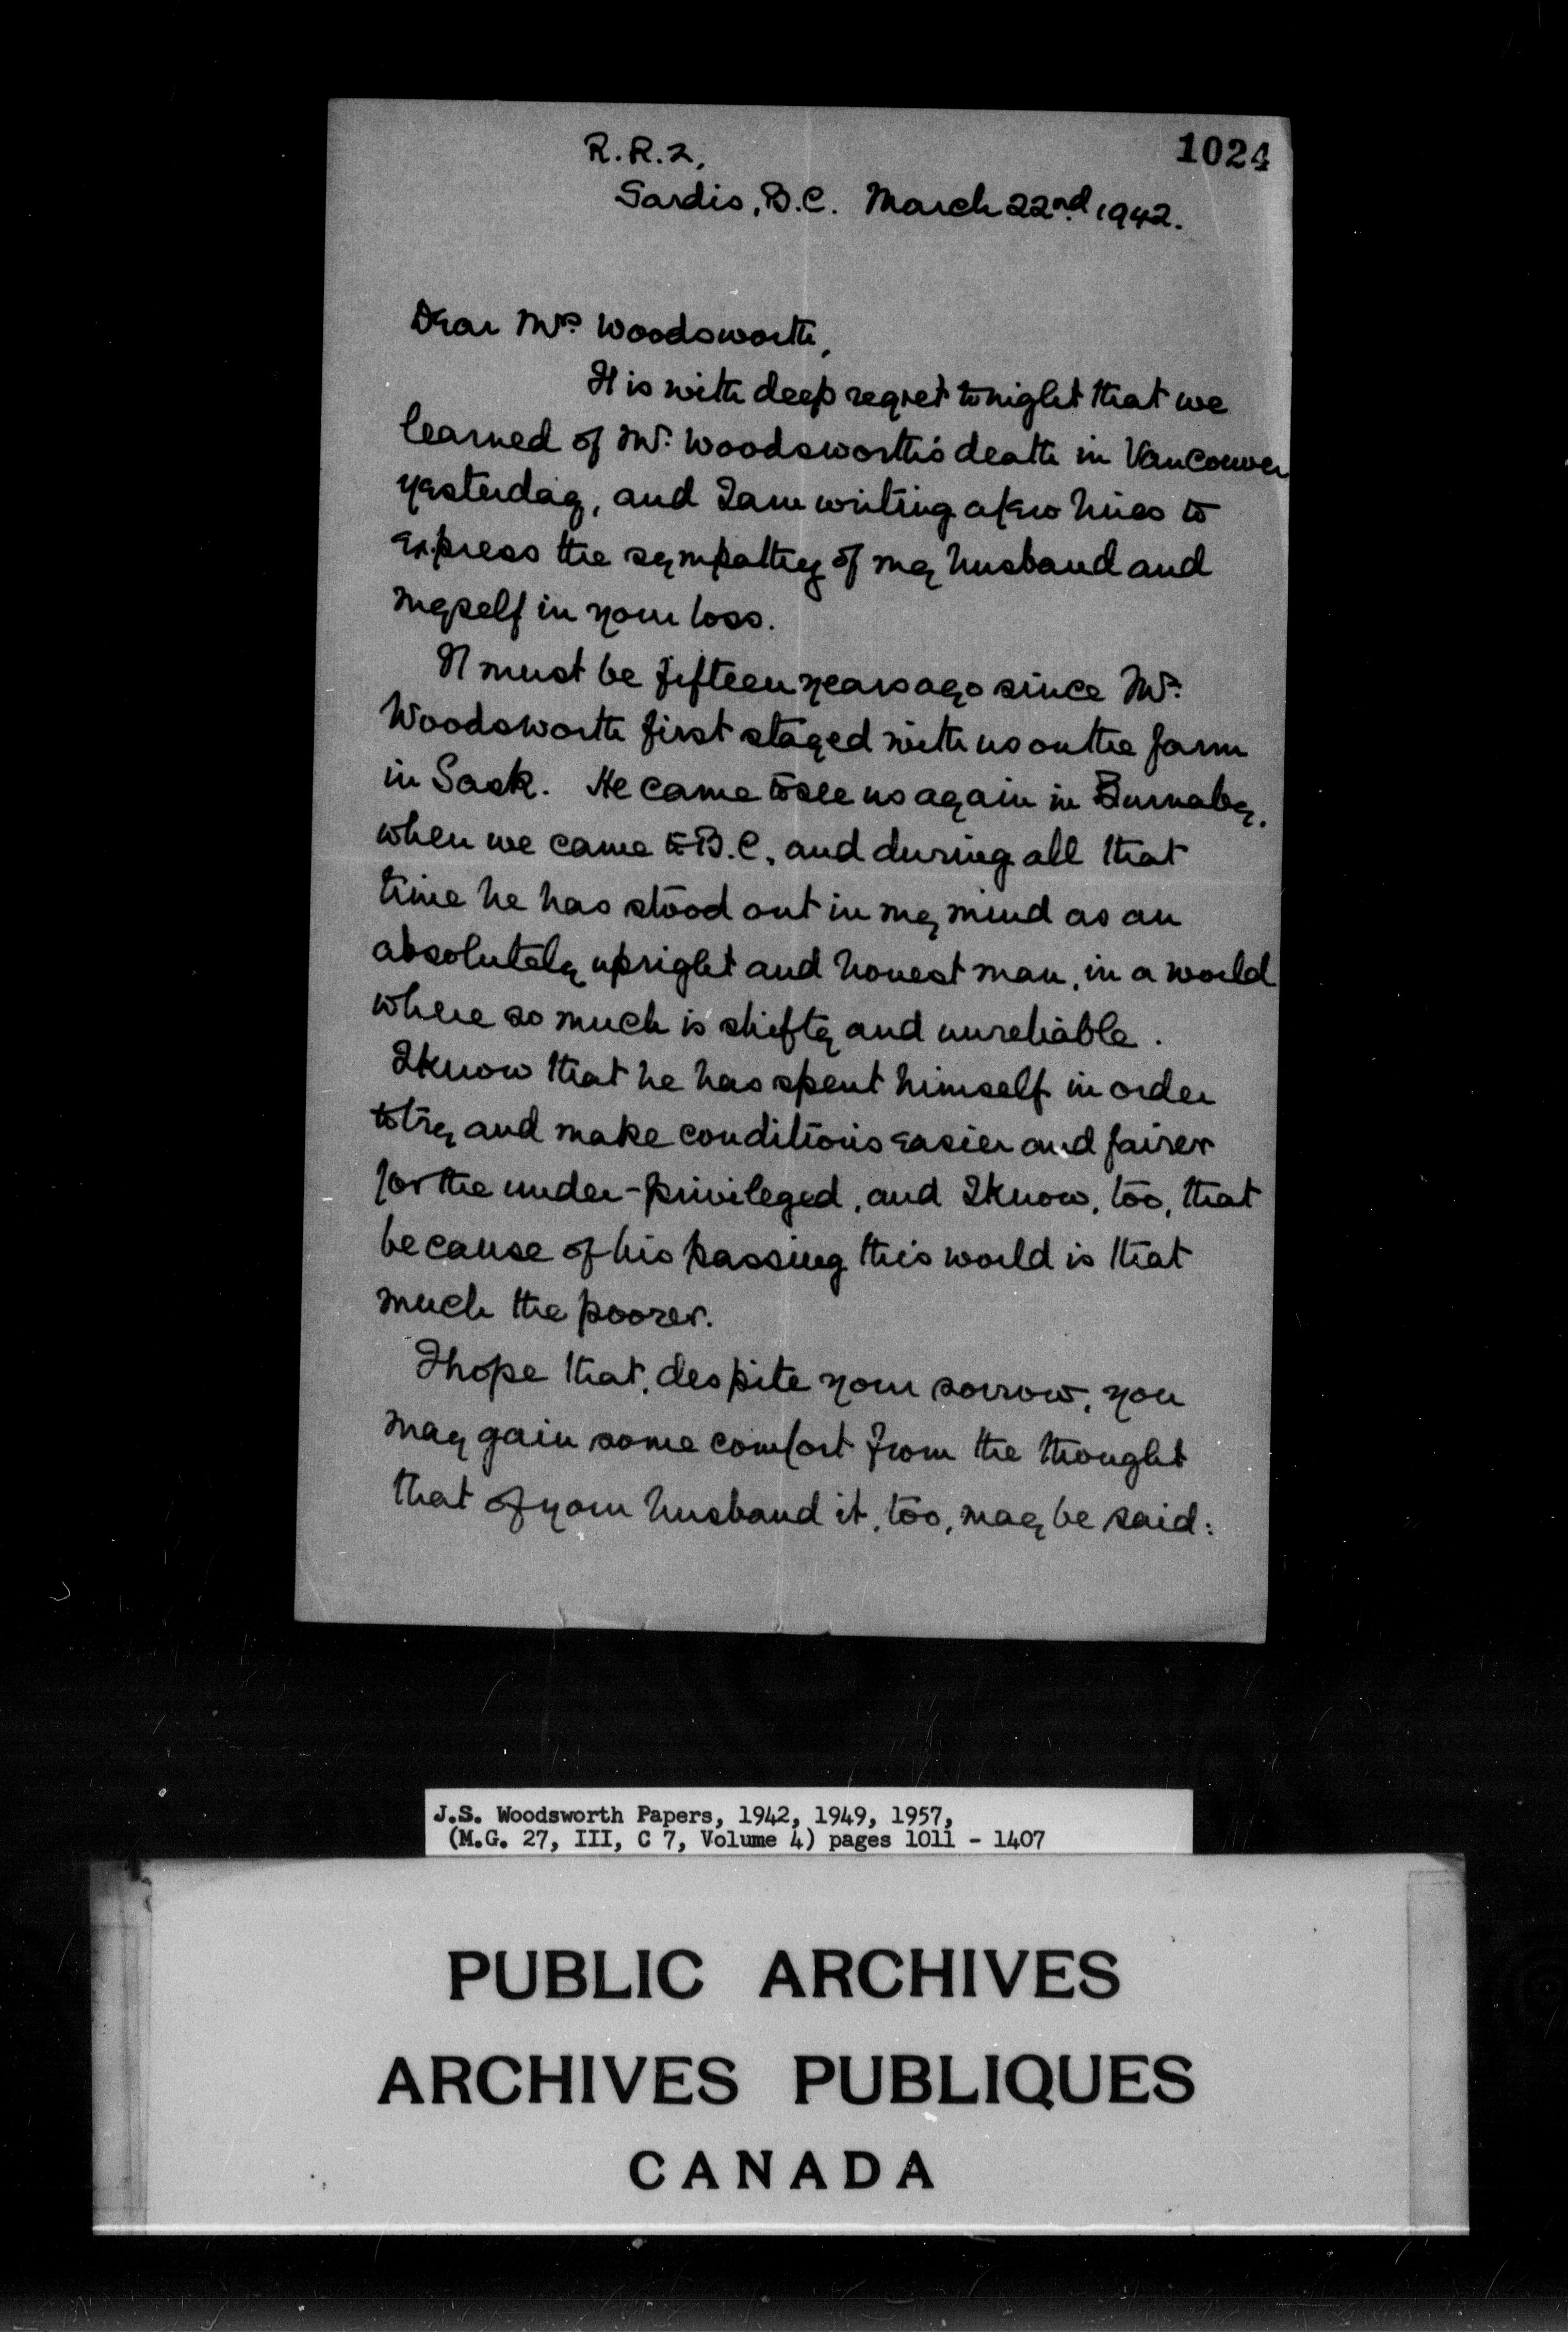 1024
R.R.2,
Sardis, B.C. March 22nd 1942.
Dear Mrs Woodsworth,
It is with deep regret tonight that we
learned of Mr. Woodsworth's death in Vancouver
yesterday, and I am writing a few lines to
express the sympathy of my husband and
myself in your loss.
It must be fifteen years ago since Mr.
Woodsworth first stayed with us on the farm
in Sask. He came to see us again in Burnaby.
when we came to B.C. and during all that
time he has stood out in my mind as an
absolutely upright and honest man, in a world
where so much is shifty and unreliable.
I know that he has spent himself in order
to try and make conditions easier and fairer
for the under-privileged, and I know, too, that
because of his passing this world is that
much the poorer.
I hope that, despite your sorrow, you
may gain some comfort from the thought
that of your husband it, too, may be said:
J.S. Woodsworth Papers, 1942, 1949, 1957,
(M.G. 27, III, C 7, Volume 4) pages 1011 - 1407
PUBLIC ARCHIVES
ARCHIVES PUBLIQUES
CANADA